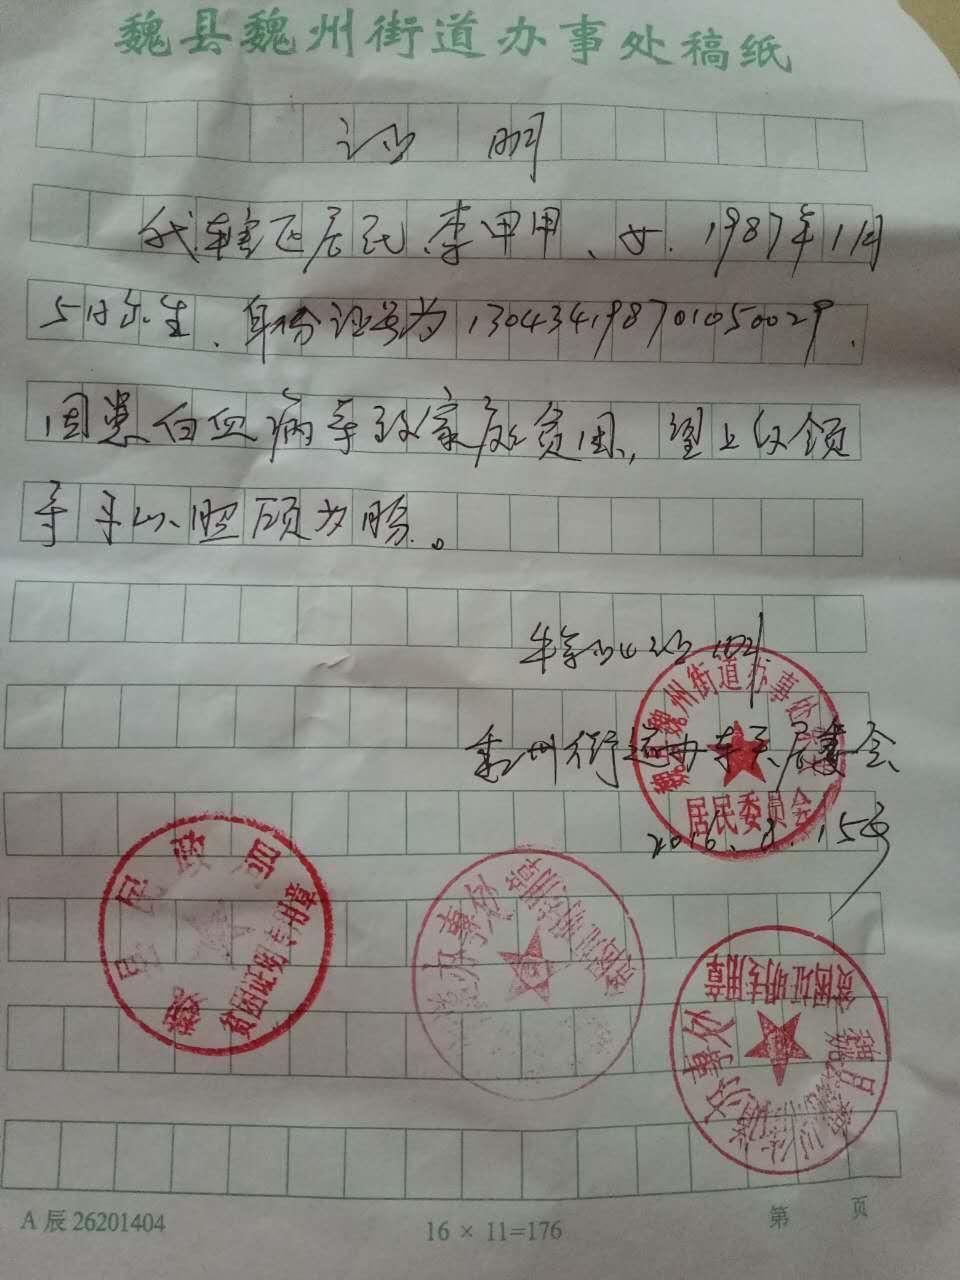 魏县魏州街道办事处稿纸
证明
我辖区居民李甲甲、女、1987年1月
5日出生、身份证号为130434198701050029.
因患白血病导致家庭贫困,望上级领
导予以照顾为盼。
特此证明
魏州街道办 居委会
2016.8.15号
魏县魏州街道办事处
居民委员会
魏县民政局
贫困证明专用章
办事处
贫困证明专用章
魏县魏州街道办事处
贫困证明专用章
A 辰 26201404
16 × 11=176
第 页